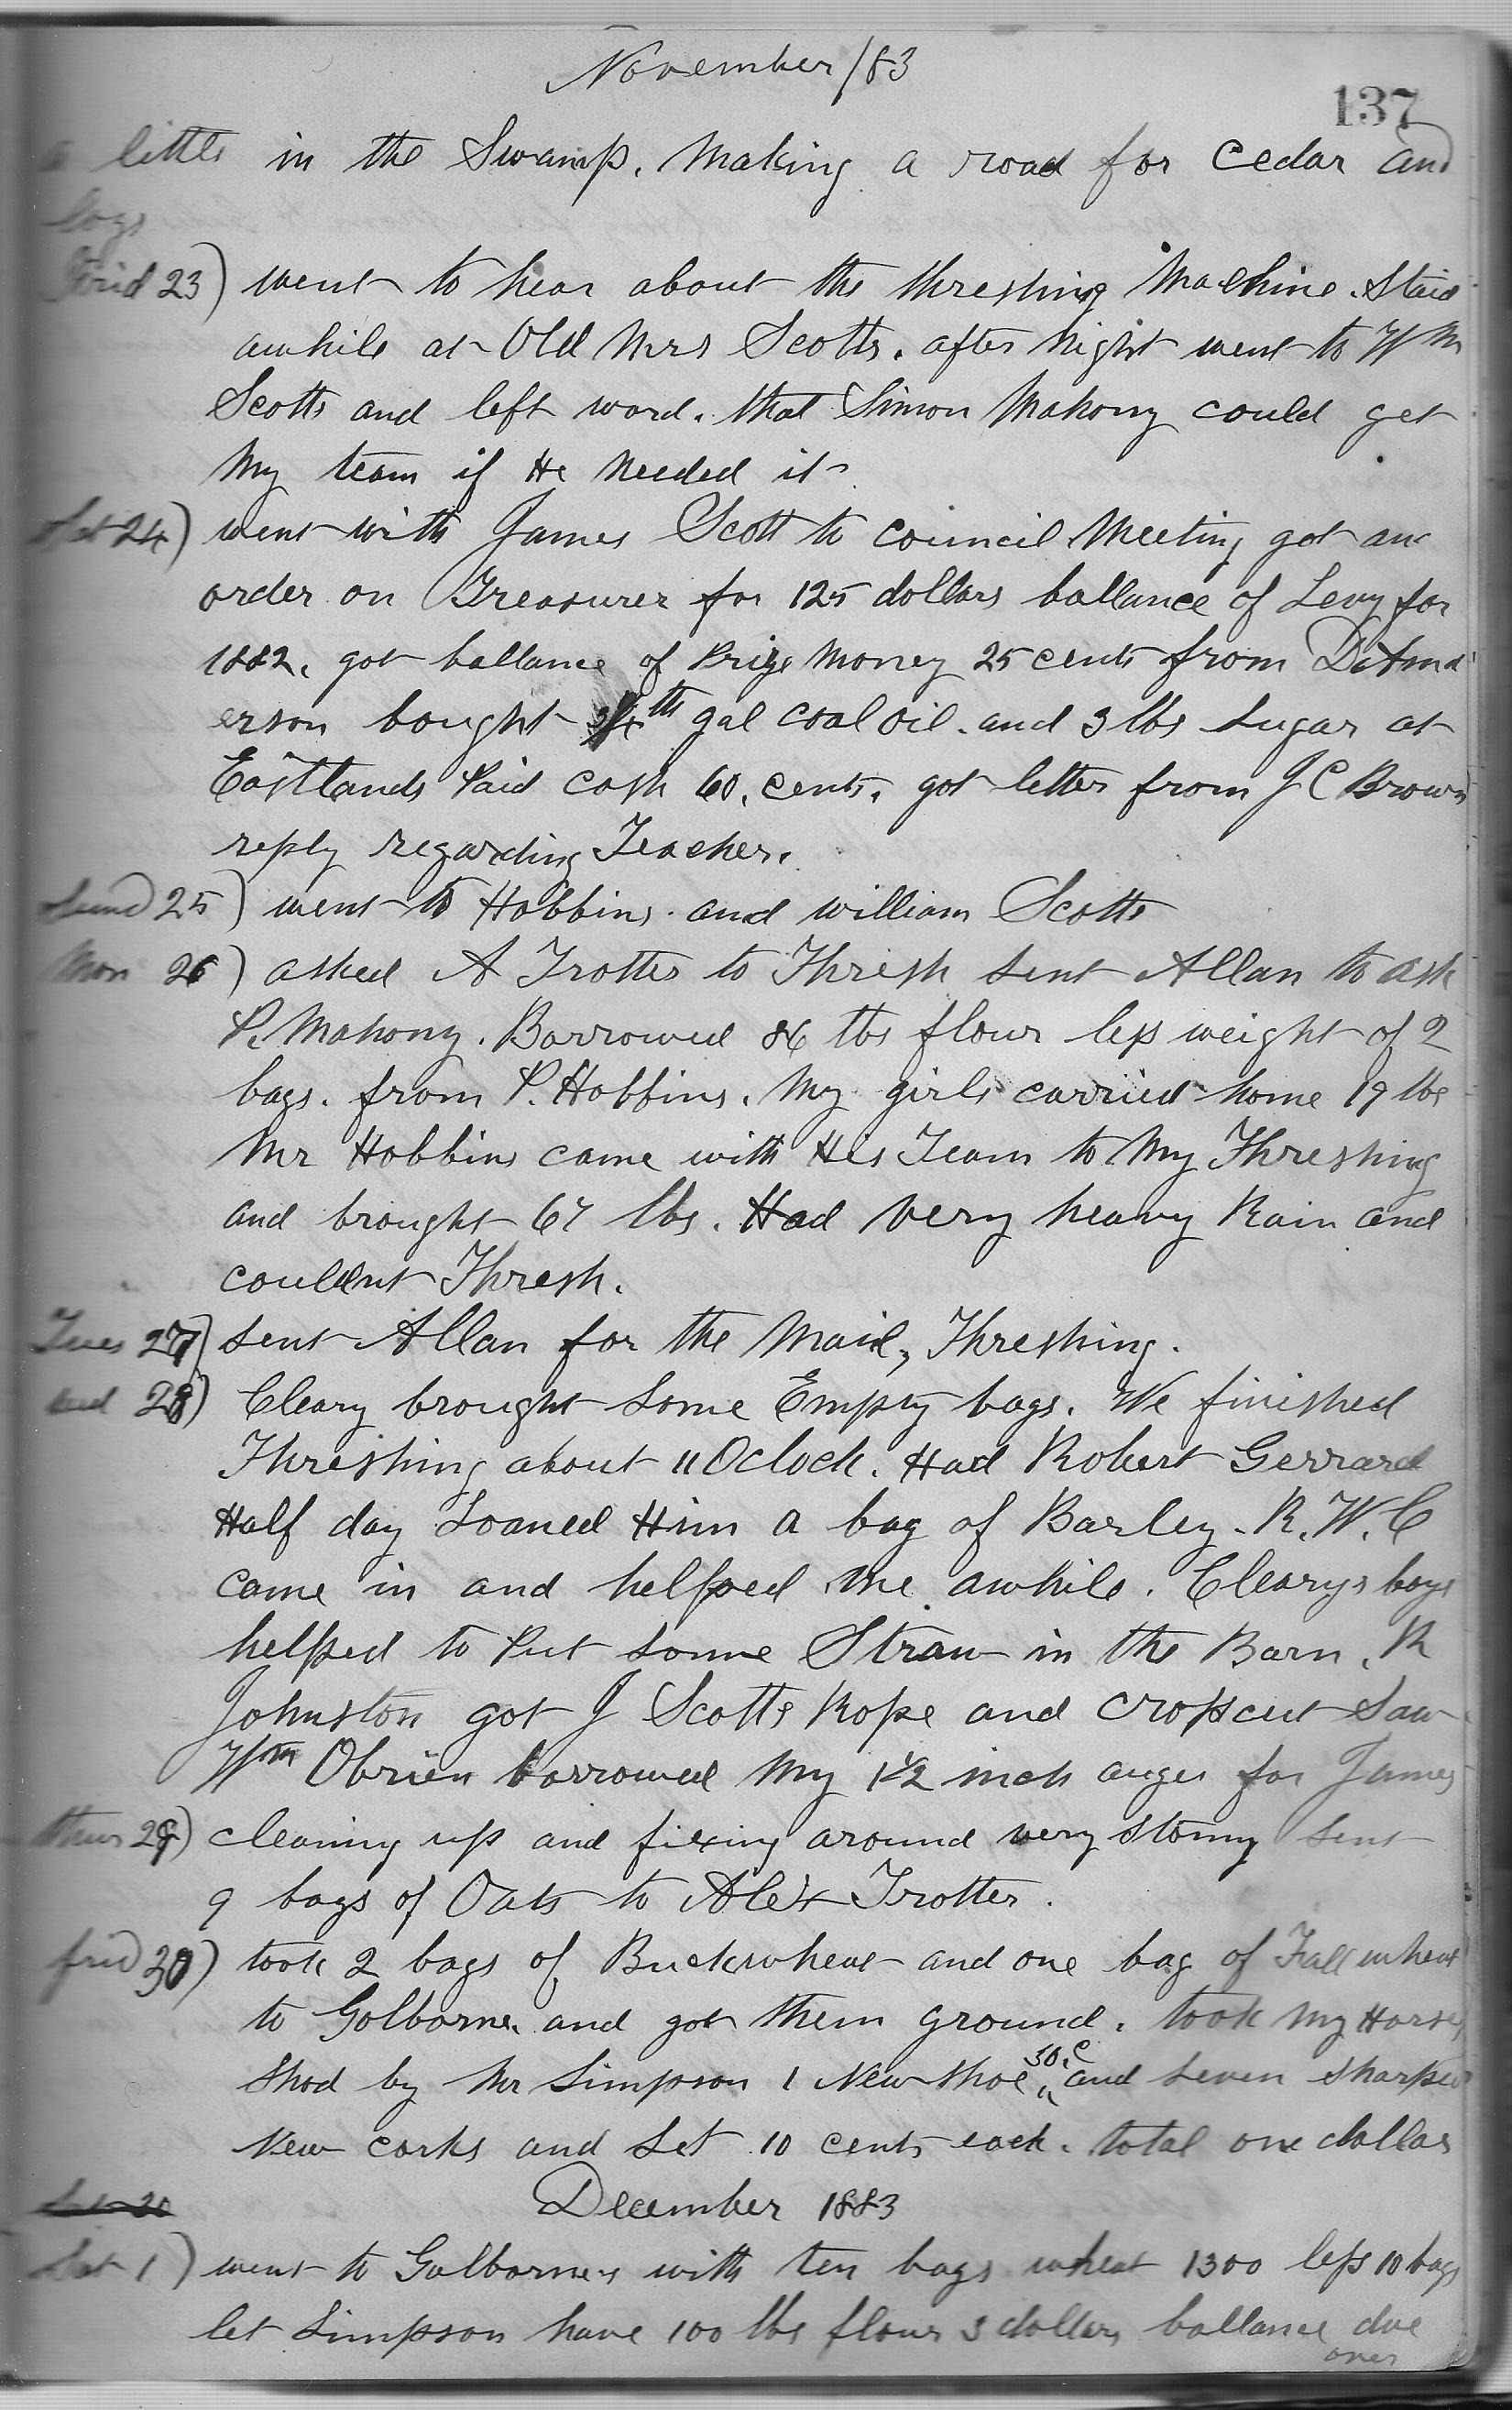 November /83
137
a little in the Swamp. Making a road for Cedar and
logs
Frid 23) went to hear about the threshing Machine. Staid
awhile at Old Mrs Scotts. after Night went to Wm
Scotts and left word. that Simon Mahony could get
My team if He Needed it
Sat 24) went with James Scott to Council Meeting got an
order on Treasurer for 125 dollars ballance of Levy for
1882. got ballance of Prize Money 25 cents from D Ama
erson bought 3/4th gal Coal oil. and 3 lbs Sugar at
Eastlands Paid Cash 60. cents. got letter from J C Brown
reply regarding Teacher.
Sund 25) went to Hobbins. and william Scotts
Mon 26) asked A Trotter to Thresh sent Allan to ask
P. Mahony. Borrowed 86 lbs flour less weight of 2
bags. from P. Hobbins. My girls carried home 19 lbs
Mr Hobbins came with His Team to My Threshing
and brought 67 lbs. Had very heavy Rain and
couldnt Thresh.
Tues 27) sent Allan for the Mail, Threshing.
wed 28) Cleary brought some Empty bags. We finished
Threshing about 11 Oclock. Had Robert Gerrard
Half day Loaned Him a bag of Barley. R. W. C
came in and helped me awhile. Clearys boys
helped to Put some Straw in the Barn. R
Johnston got J Scotts Rope and Crosscut Saw
Wm Obrien borrowed My 1 1/2 inch auger for James
thur 29) cleaning up and fixing around very stormy sent
9 bags of Oats to Alex Trotter.
frid 30) took 2 bags of Buckwheat and one bag of Fall wheat
to Golborne. and got them ground. took My Horses
Shod by Mr Simpson 1 New Shoe 30.c and seven sharped
New corks and Set 10 cents each. total one dollar
December 1883
Sat 30
Sat 1) went to Golbornes with ten bags wheat 1300 less 10 bags
let Simpson have 100 lbs flour 3 dollars ballance due
over